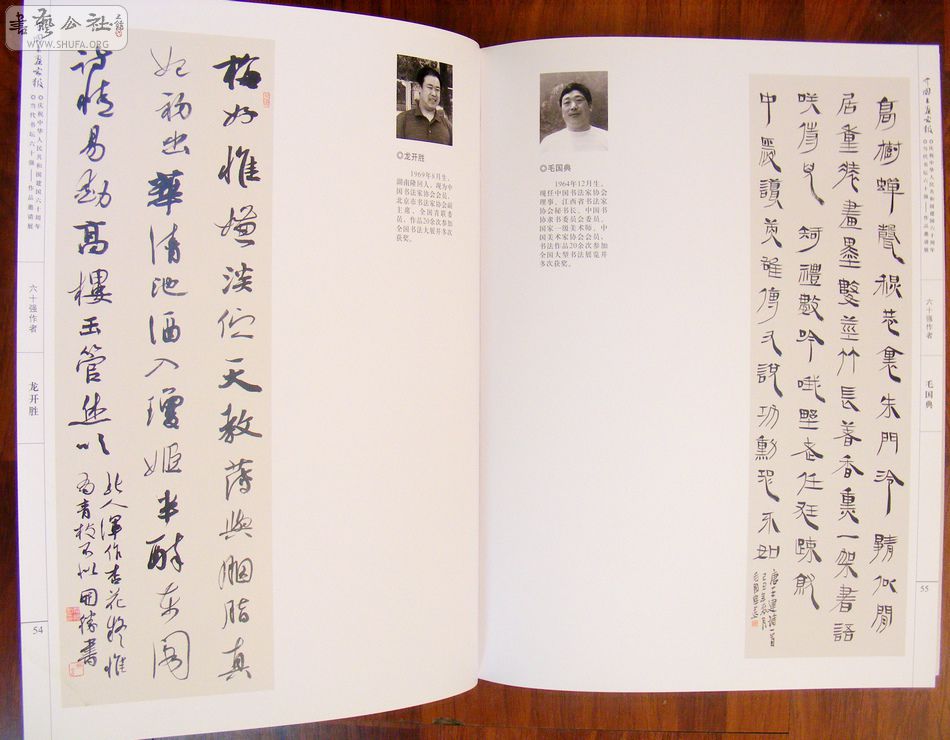 書藝公社
WWW.SHUFA.ORG
◎庆祝中华人民共和国建国六十周年
◎当代书坛六十强——作品邀请展
六十强作者
龙开胜
54
梅好惟嫌淡佇天教薄與胭脂真
妃初出華清池酒入瓊姬半醉東閣
詩情易動高樓玉管休吹
北人渾作杏花疑惟
有青枝不似開勝書
◎龙开胜
1969年8月生,
湖南隆回人。现为中
国书法家协会会员、
北京市书法家协会副
主席、全国青联委
员。作品20余次参加
全国书法大展并多次
获奖。
◎毛国典
1964年12月生。
现任中国书法家协会
理事、江西省书法家
协会秘书长、中国书
协隶书委员会委员、
国家一级美术师、中
国美术家协会会员。
书法作品20余次参加
全国大型书法展览并
多次获奖。
高樹蟬聲秋巷裏朱門冷靜似閒
居重裝畫墨數莖竹長著香熏一架書語
笑侍兒知禮數吟哦野老任狂疏就
中愛讀英雄傳又說功勳恐不如
唐王建詩一首
中国书画家报
◎庆祝中华人民共和国建国六十周年
◎当代书坛六十强——作品邀请展
六十强作者
毛国典
55